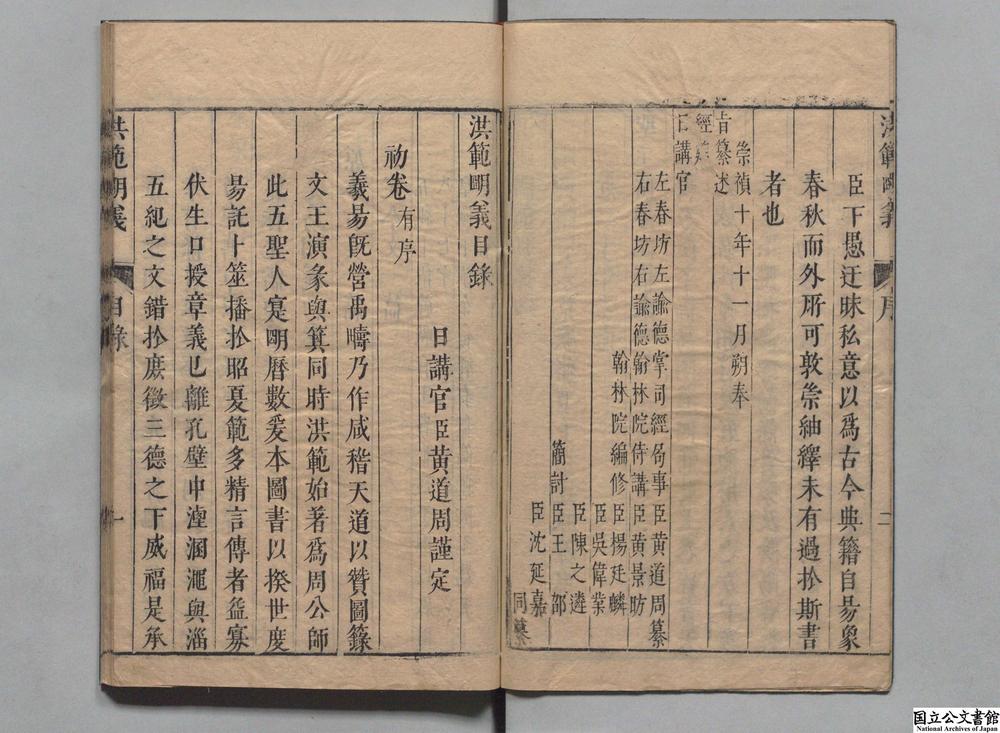 洪範明義 序 二
臣下愚迂昧私意以爲古今典籍自易象
春秋而外所可敦崇紬繹未有過於斯書
者也
崇禎十年十一月朔奉
旨纂述
經筵
日講官
左春坊左諭德掌司經局事臣黄道周纂
右春坊右諭德翰林院侍講臣黄景昉
翰林院編修臣楊廷麟
臣吳偉業
臣陳之遴
簡討臣王邵
臣沈延嘉
同纂
洪範明義目錄
日講官臣黄道周謹定
初卷有序
羲易旣營禹疇乃作咸稽天道以贊圖籙
文王演彖與箕同時洪範始著爲周公師
此五聖人寔明曆數爰本圖書以揆世度
易託卜筮播於昭夏範多精言傳者益寡
伏生口授章義已離孔壁中湮溷澠與淄
五紀之文錯於庶徵三德之下威福是承
洪範明義 目錄 一
国立公文書館
National Archives of Japan